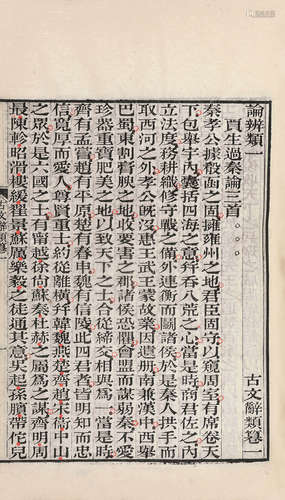 論辨類一　古文辭類纂一
賈生過秦論三首。。。
秦孝公據殽函之固擁雍州之地君臣固守以窺周室有席卷天
下包舉宇內囊括四海之意并吞八荒之心當是時商君佐之內
立法度務耕織修守戰之備外連衡而鬬諸侯於是秦人拱手而
取西河之外孝公既沒惠王武王蒙故業因遺冊南兼漢中西舉
巴蜀東割膏腴之地收要害之郡諸侯恐懼會盟而謀弱秦不愛
珍器重寶肥美之地以致天下之士合從締交相與爲一當是時
齊有孟嘗趙有平原楚有春申魏有信陵此四君者皆明知而忠
信寬厚而愛人尊賢重士約從離橫并韓魏燕楚齊趙宋衞中山
之眾於是六國之士有甯越徐尚蘇秦杜赫之屬爲之謀齊明周
最陳軫昭滑樓緩翟景蘇厲樂毅之徒通其意吳起孫臏帶佗兒
古文辭類纂一